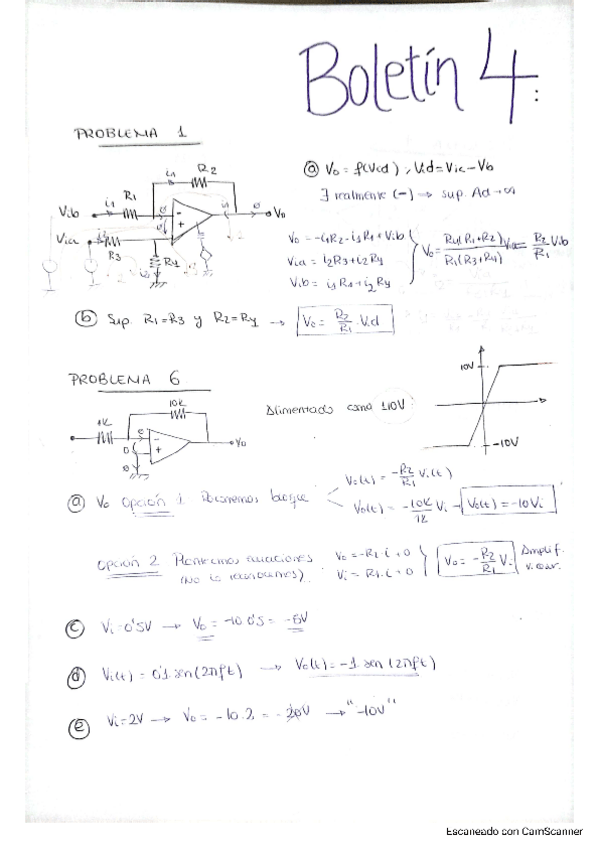 Boletín 4:
PROBLEMA 1
R2
i1
R1
Vib
Via
R3
R4
Vo
ⓐ Vo = f(Vcd), Vid = Via - Vb
∃ realmente (-) → sup. Ad → ∞
Vo = -i1R2 - i1R1 + Vib
Via = i2R3 + i2Ry
Vo = R4(R1+R2) / R1(R3+R4)
R2/R1 Vib
ⓑ Sup. R1 = R3 y R2 = Ry → Vo = R2/R1 · Vid
PROBLEMA 6
10K
1K
Vo
Alimentado como ±10V
10V
-10V
ⓐ Vo opción 1. Conocemos bloque
Vo(t) = -R2/R1 Vi(t)
Vo(t) = -10K/1K Vi → Vo(t) = -10Vi
opción 2. Planteamos ecuaciones
(No lo conocemos)
Vo = -R2·i + 0
Vi = R1·i + 0
Vo = -R2/R1 Vi
Amplif.
ⓒ Vi = 0'5V → Vo = -10·0'5 = -5V
ⓓ Vi(t) = 0'1·sen(2πft) → Vo(t) = -1·sen(2πft)
ⓔ Vi = 2V → Vo = -10·2 = -20V → "-10V"
Escaneado con CamScanner